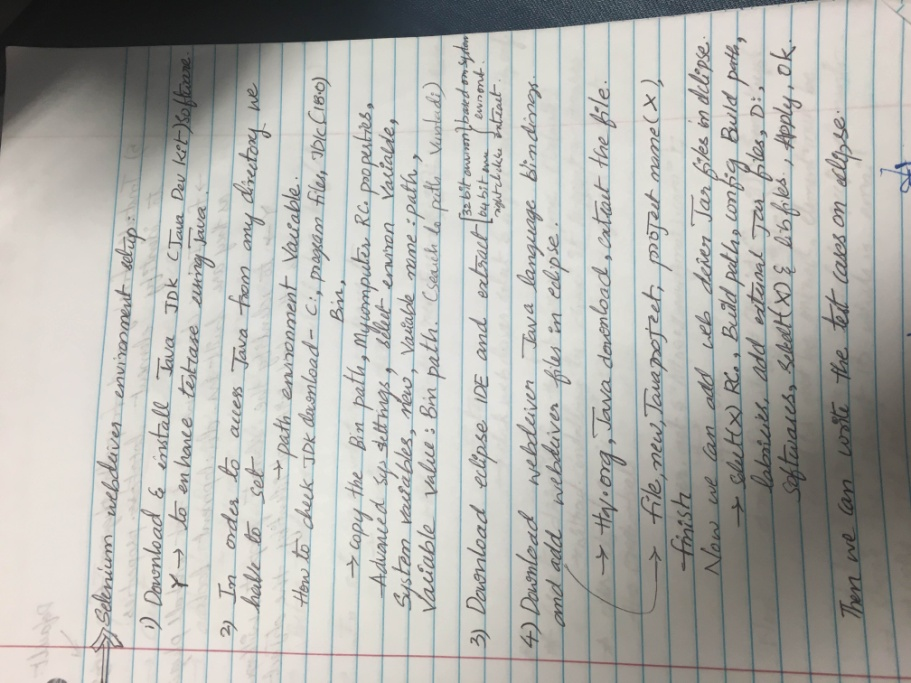 Selenium webdriver environment setup:
1) Download & install Java JDK (Java Dev Kit) software
Y → to enhance testcase using Java
2) In order to access Java from any directory we
have to set
→ path environment Variable.
How to check JDK download - C:, program files, JDK(1.8.0)
Bin,
→ copy the Bin path, Mycomputer RC. properties,
Advanced sys settings, select environ Variable,
System variables, new, Variable name: path,
Variable value: Bin path. (search to path
3) Download eclipse IDE and extract [32 bit environ] based on system
64 bit environ
right click extract.
4) Download webdriver Java language bindings.
and add webdriver files in eclipse.
→ Java download, extract the file.
→ file, new, Java project, project name (X),
finish
Now we can add web driver Jar files in eclipse.
→ select(X) RC, Build path, config Build path,
libraries, add external Jar files, D:,
Softwares, select(X) & libfiles, Apply, OK.
Then we can write the test cases on eclipse.